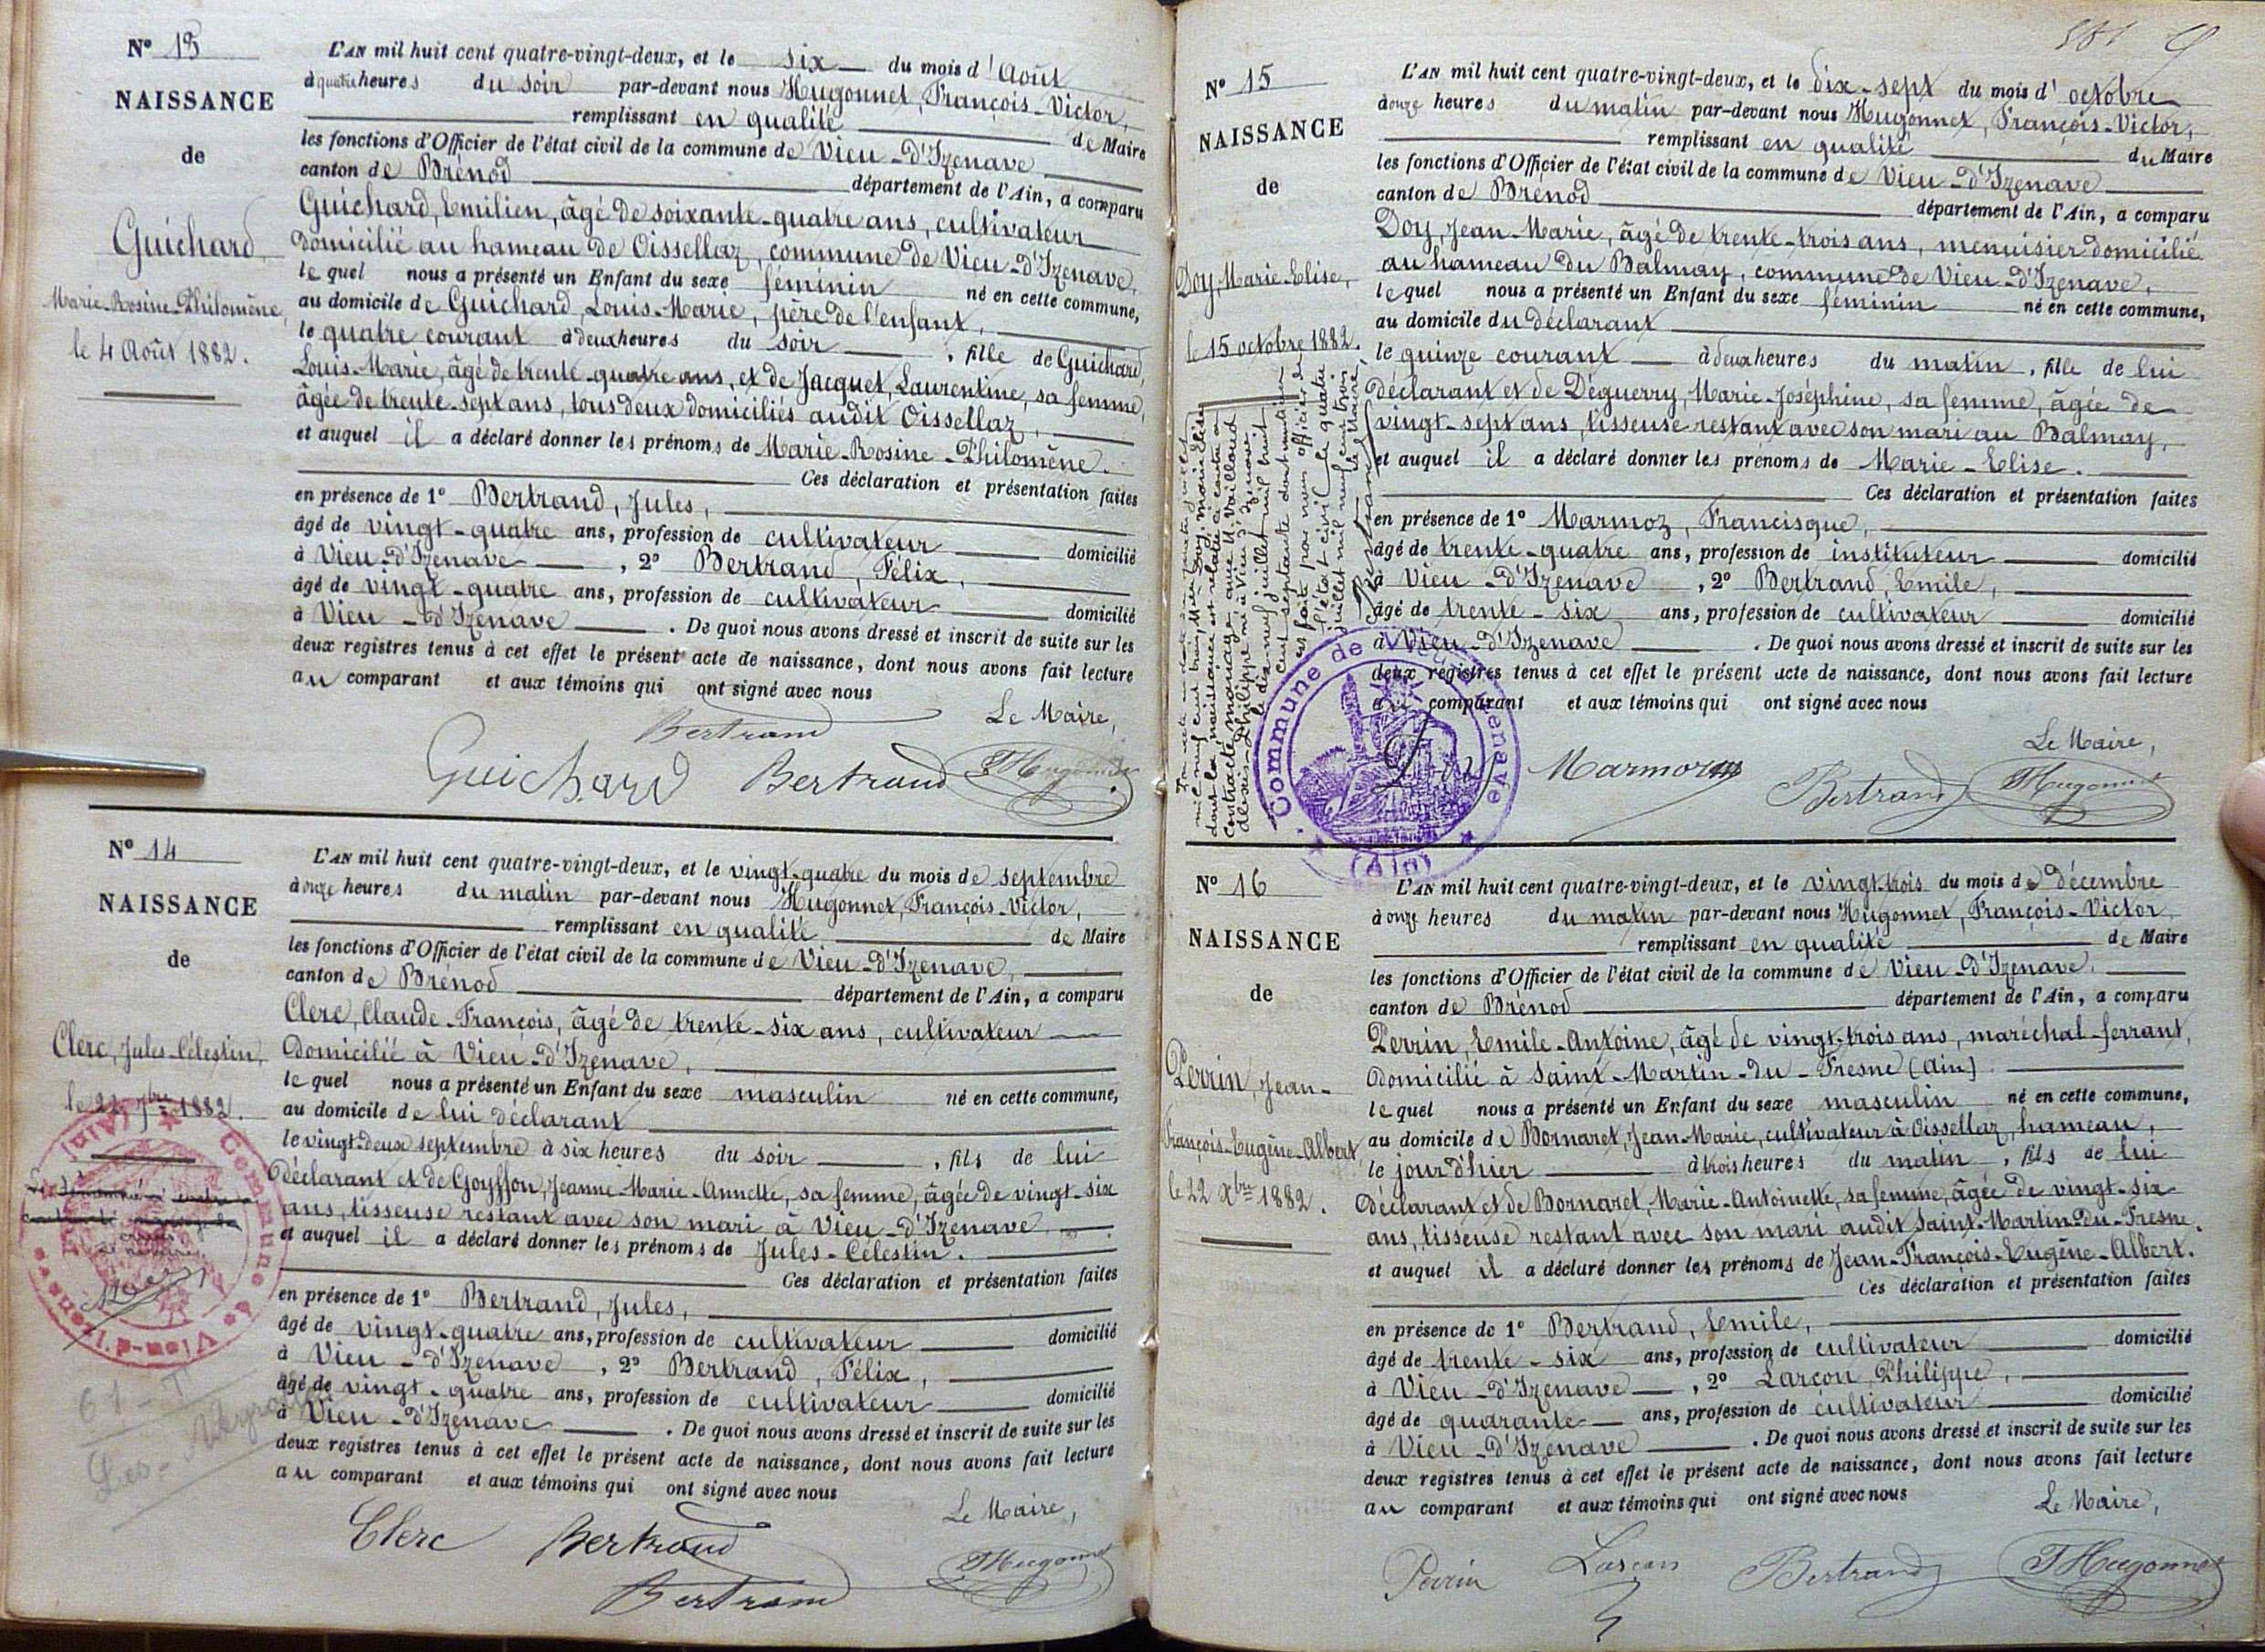 N° 13
NAISSANCE
de
Guichard,
Marie-Rosine-Philomène,
le 4 Août 1882.
L'AN mil huit cent quatre-vingt-deux, et le six du mois d'Août
à quatre heures du soir par-devant nous Hugonnet, François-Victor,
remplissant en qualité de Maire
les fonctions d'Officier de l'état civil de la commune de Vieu-d'Izenave
canton de Brénod département de l'Ain, a comparu
Guichard, Emilien, âgé de soixante-quatre ans, cultivateur
domicilié au hameau de Oissellaz, commune de Vieu-d'Izenave,
le quel nous a présenté un Enfant du sexe féminin né en cette commune,
au domicile de Guichard, Louis-Marie, père de l'enfant,
le quatre courant à deux heures du soir, fille de Guichard,
Louis-Marie, âgé de trente-quatre ans, et de Jacquet, Laurentine, sa femme,
âgée de trente-sept ans, tous deux domiciliés audit Oissellaz,
et auquel il a déclaré donner les prénoms de Marie-Rosine-Philomène.
Ces déclaration et présentation faites
en présence de 1° Bertrand, Jules,
âgé de vingt-quatre ans, profession de cultivateur domicilié
à Vieu-d'Izenave, 2° Bertrand, Félix,
âgé de vingt-quatre ans, profession de cultivateur domicilié
à Vieu-d'Izenave. De quoi nous avons dressé et inscrit de suite sur les
deux registres tenus à cet effet le présent acte de naissance, dont nous avons fait lecture
au comparant et aux témoins qui ont signé avec nous
Le Maire,
Bertrand
Guichard Bertrand FHugonnet
N° 14
NAISSANCE
de
Clerc, Jules-Célestin,
le 22 7bre 1882.
Commune de Vieu-d'Izenave (Ain)
61-T
Les-Neyrolles
L'AN mil huit cent quatre-vingt-deux, et le vingt-quatre du mois de septembre
à onze heures du matin par-devant nous Hugonnet, François-Victor,
remplissant en qualité de Maire
les fonctions d'Officier de l'état civil de la commune de Vieu-d'Izenave,
canton de Brénod département de l'Ain, a comparu
Clerc, Claude-François, âgé de trente-six ans, cultivateur
domicilié à Vieu-d'Izenave,
le quel nous a présenté un Enfant du sexe masculin né en cette commune,
au domicile de lui déclarant
le vingt-deux septembre à six heures du soir, fils de lui
déclarant et de Goyffon, Jeanne-Marie-Annette, sa femme, âgée de vingt-six
ans, tisseuse restant avec son mari à Vieu-d'Izenave,
et auquel il a déclaré donner les prénoms de Jules-Célestin.
Ces déclaration et présentation faites
en présence de 1° Bertrand, Jules,
âgé de vingt-quatre ans, profession de cultivateur domicilié
à Vieu-d'Izenave, 2° Bertrand, Félix,
âgé de vingt-quatre ans, profession de cultivateur domicilié
à Vieu-d'Izenave. De quoi nous avons dressé et inscrit de suite sur les
deux registres tenus à cet effet le présent acte de naissance, dont nous avons fait lecture
au comparant et aux témoins qui ont signé avec nous
Le Maire,
Clerc Bertrand FHugonnet
Bertrand
N° 15
NAISSANCE
de
Doy, Marie-Elise,
le 15 octobre 1882.
mil neuf cent trois, Mlle Doy, Marie Elise
dont la naissance est relatée ci-contre a
contracté mariage avec M. Vailloud
Philippe né à Vieu d'Izenave
le dix-neuf juillet mil huit
cent septante dont mention
est faite par nous officier de
l'état civil le quatre
juillet mil neuf cent trois
Le Maire,
Commune de Vieu-d'Izenave (Ain)
L'AN mil huit cent quatre-vingt-deux, et le dix-sept du mois d'octobre
à onze heures du matin par-devant nous Hugonnet, François-Victor,
remplissant en qualité du Maire
les fonctions d'Officier de l'état civil de la commune de Vieu-d'Izenave
canton de Brénod département de l'Ain, a comparu
Doy, Jean-Marie, âgé de trente-trois ans, menuisier domicilié
au hameau du Balmay, commune de Vieu-d'Izenave,
le quel nous a présenté un Enfant du sexe féminin né en cette commune,
au domicile du déclarant
le quinze courant à deux heures du matin, fille de lui
déclarant et de Déguerry, Marie-Joséphine, sa femme, âgée de
vingt-sept ans, tisseuse restant avec son mari au Balmay,
et auquel il a déclaré donner les prénoms de Marie-Elise.
Ces déclaration et présentation faites
en présence de 1° Marmoz, Francisque,
âgé de trente-quatre ans, profession de instituteur domicilié
à Vieu-d'Izenave, 2° Bertrand, Emile,
âgé de trente-six ans, profession de cultivateur domicilié
à Vieu-d'Izenave. De quoi nous avons dressé et inscrit de suite sur les
deux registres tenus à cet effet le présent acte de naissance, dont nous avons fait lecture
au comparant et aux témoins qui ont signé avec nous
Le Maire,
Doy Marmoz Bertrand FHugonnet
N° 16
NAISSANCE
de
Perrin, Jean-
François-Eugène-Albert
le 22 Xbre 1882.
L'AN mil huit cent quatre-vingt-deux, et le vingt-trois du mois de décembre
à onze heures du matin par-devant nous Hugonnet, François-Victor,
remplissant en qualité de Maire
les fonctions d'Officier de l'état civil de la commune de Vieu-d'Izenave,
canton de Brénod département de l'Ain, a comparu
Perrin, Emile-Antoine, âgé de vingt-trois ans, maréchal-ferrant,
domicilié à Saint-Martin-du-Fresne (Ain)
le quel nous a présenté un Enfant du sexe masculin né en cette commune,
au domicile de Bornaret, Jean-Marie, cultivateur à Oissellaz, hameau,
le jour d'hier à trois heures du matin, fils de lui
déclarant et de Bornaret, Marie-Antoinette, sa femme, âgée de vingt-six
ans, tisseuse restant avec son mari audit Saint-Martin-du-Fresne.
et auquel il a déclaré donner les prénoms de Jean-François-Eugène-Albert.
Ces déclaration et présentation faites
en présence de 1° Bertrand, Emile,
âgé de trente-six ans, profession de cultivateur domicilié
à Vieu-d'Izenave, 2° Larçon, Philippe,
âgé de quarante ans, profession de cultivateur domicilié
à Vieu-d'Izenave. De quoi nous avons dressé et inscrit de suite sur les
deux registres tenus à cet effet le présent acte de naissance, dont nous avons fait lecture
au comparant et aux témoins qui ont signé avec nous
Le Maire,
Perrin Larçon Bertrand FHugonnet